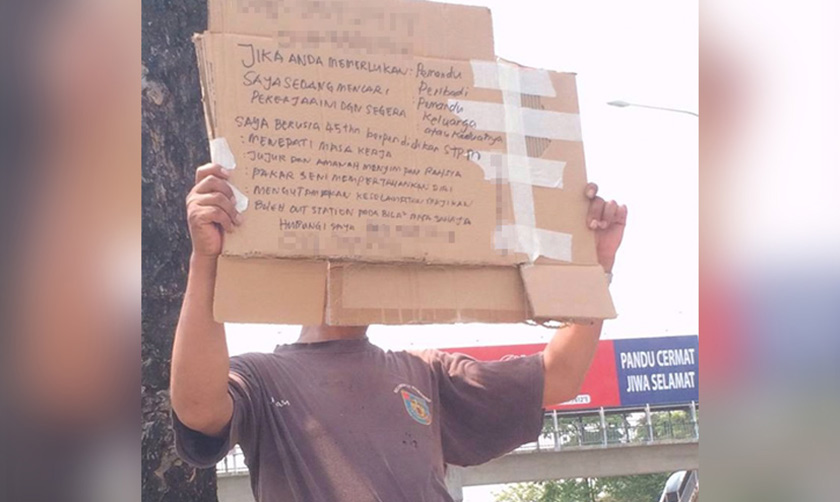 JIKA ANDA MEMERLUKAN : Pemandu
Peribadi
SAYA SEDANG MENCARI : Pemandu
PEKERJAAN INI DGN SEGERA Keluarga
atau
SAYA BERUSIA 45thn berpendidikan STPM
: MENEPATI MASA KERJA
JUJUR DAN AMANAH MENYIMPAN RAHSIA
: PAKAR SENI MEMPERTAHANKAN DIRI
: MENGUTAMAKAN KESELAMATAN MAJIKAN
BOLEH OUT STATION PADA BILA² MASA SAHAJA
HUBUNGI SAYA
PANDU CERMAT
JIWA SELAMAT